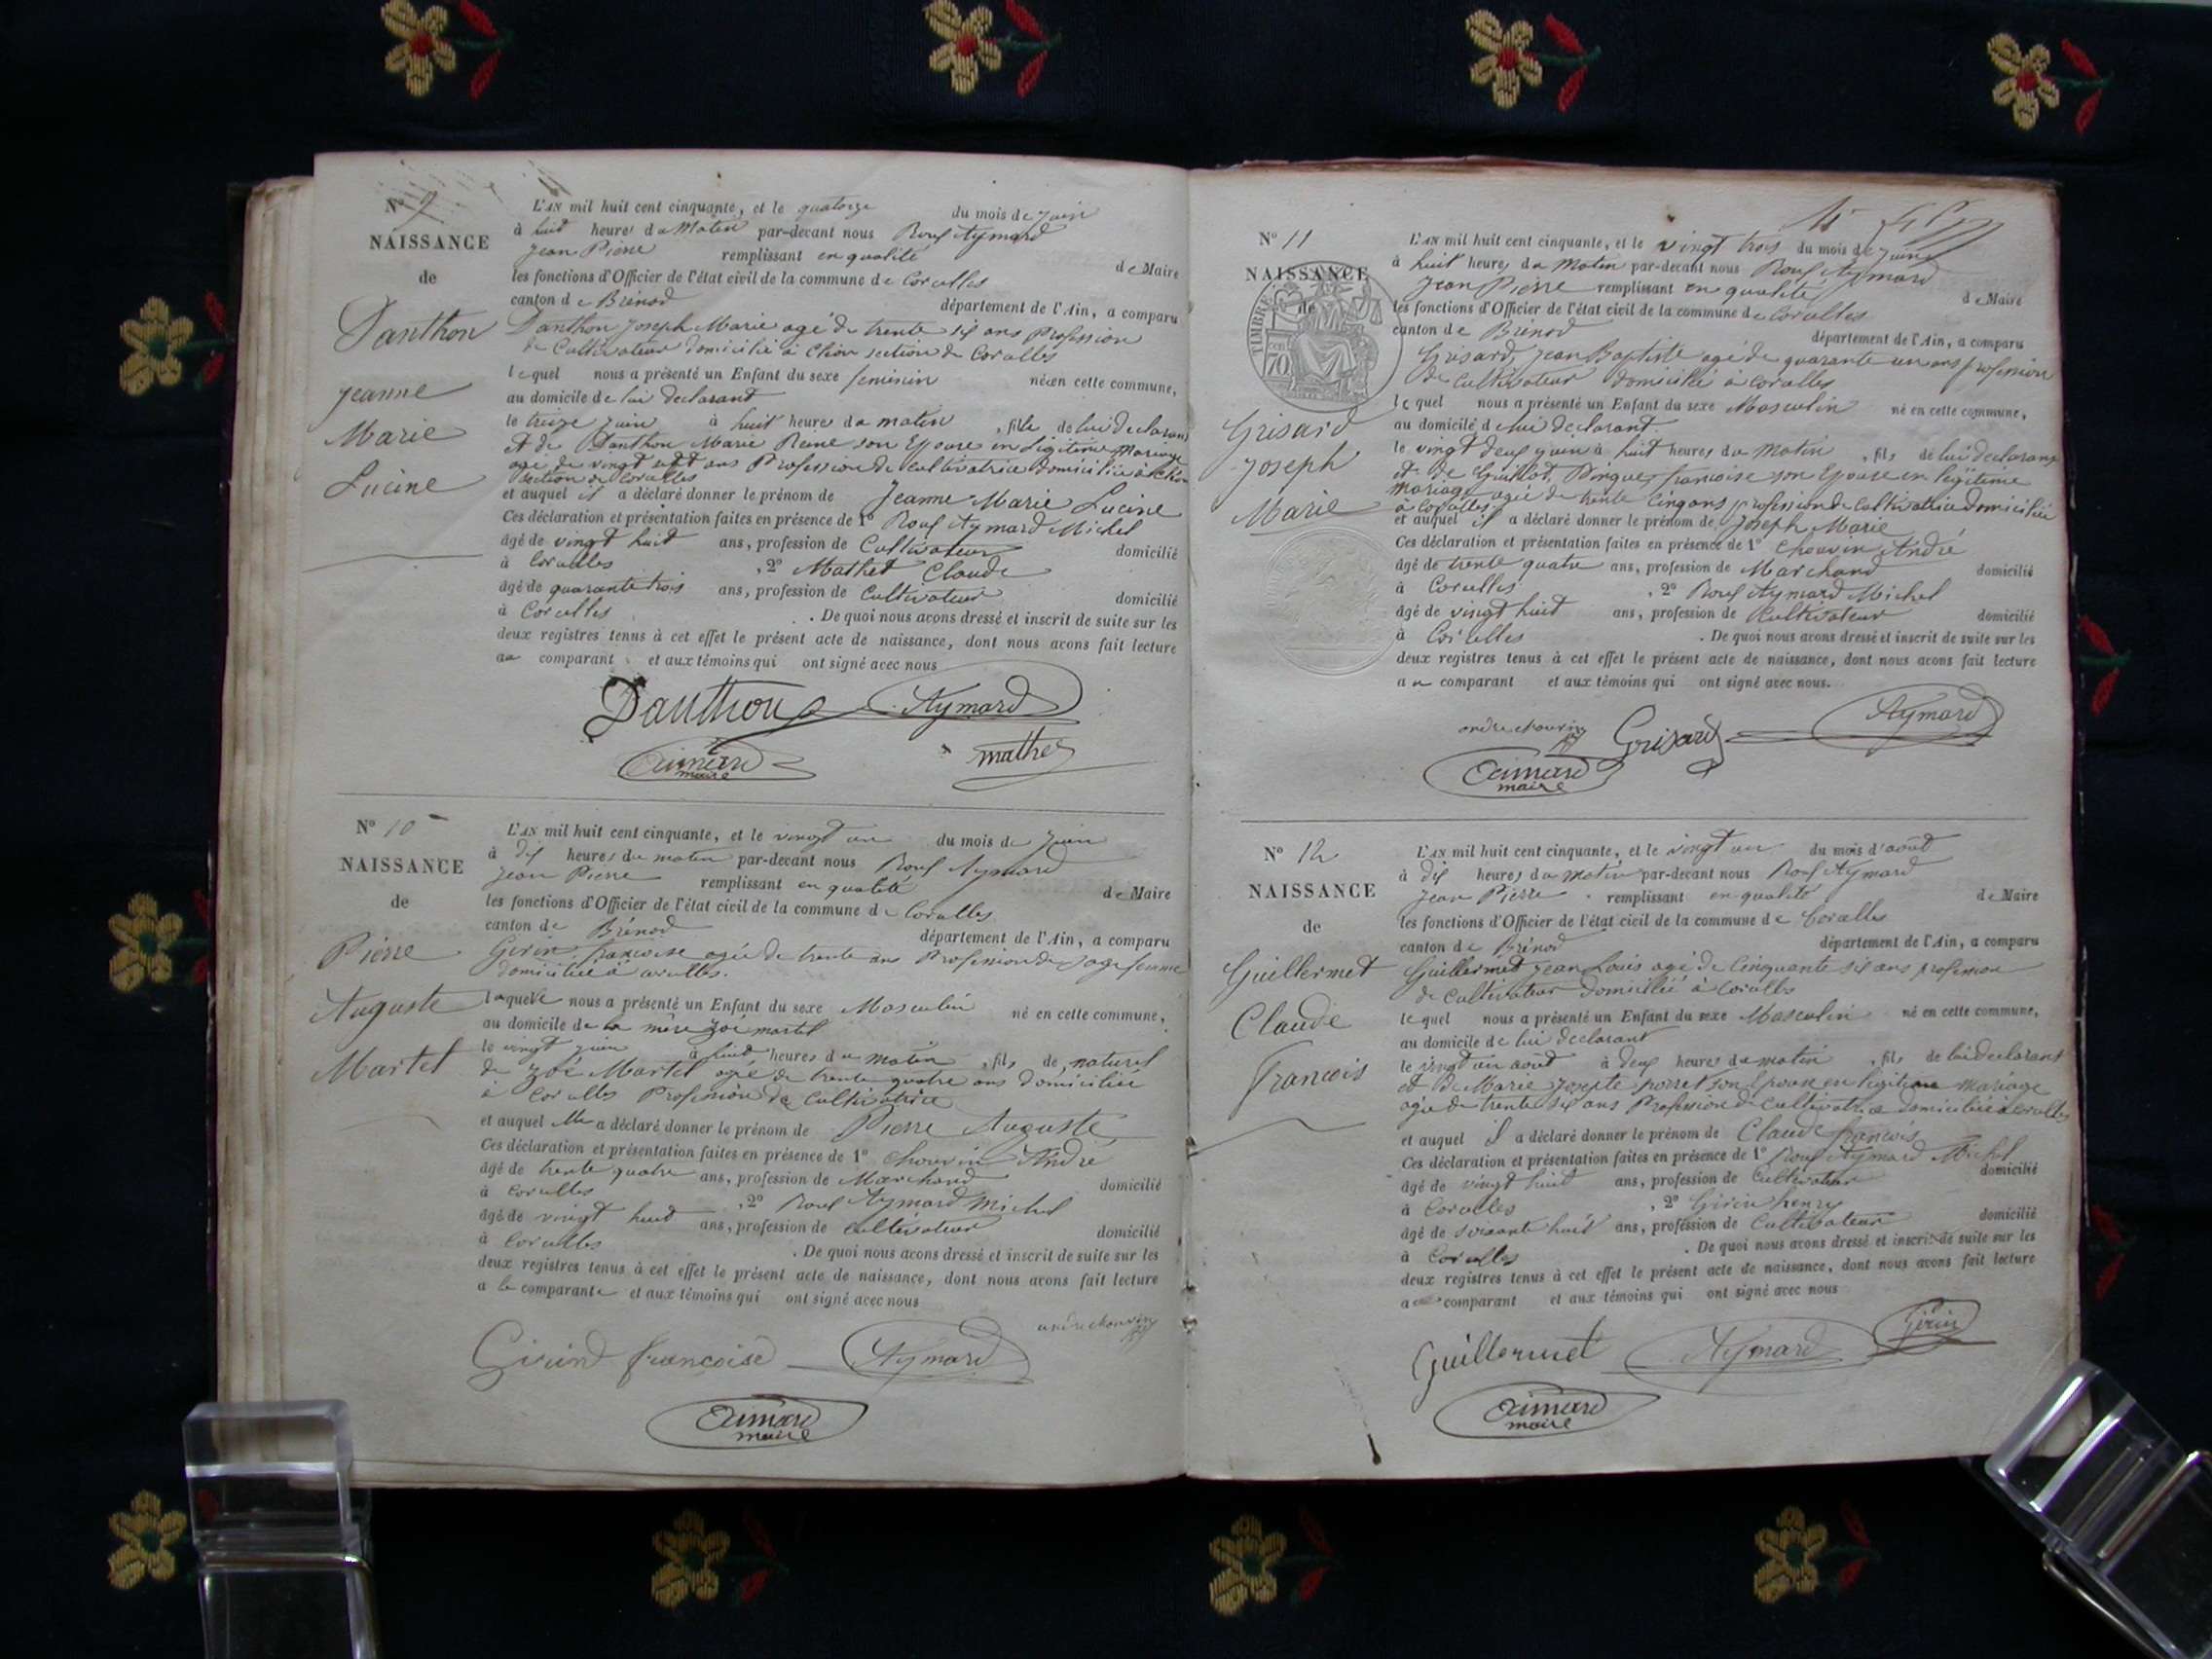 N° 9
NAISSANCE
de
Danthon
Jeanne
Marie
Lucine
L'AN mil huit cent cinquante, et le quatorze du mois de juin
à huit heures du Matin par-devant nous Roux Aymard
Jean Pierre remplissant en qualité de Maire
les fonctions d'Officier de l'état civil de la commune de Corcelles
canton de Brénod département de l'Ain, a comparu
Danthon Joseph Marie agé de trente six ans Profession
de Cultivateur domicilié à section de Corcelles
lequel nous a présenté un Enfant du sexe feminin née en cette commune,
au domicile de lui declarant
le treize juin à huit heure du matin , fille de lui declarant
et de Danthon Marie Reine son Epouse en Légitime Mariage
agé de vingt sept ans Profession de cultivatrice domiciliée à
section de Corcelles
et auquel il a déclaré donner le prénom de Jeanne Marie Lucine
Ces déclaration et présentation faites en présence de 1° Roux Aymard Michel
âgé de vingt huit ans, profession de Cultivateur domicilié
à Corcelles , 2° Mathet Claude
âgé de quarante trois ans, profession de Cultivateur domicilié
à Corcelles . De quoi nous avons dressé et inscrit de suite sur les
deux registres tenus à cet effet le présent acte de naissance, dont nous avons fait lecture
au comparant et aux témoins qui ont signé avec nous
Danthon Aymard
Aimard
maire
mathet
N° 10
NAISSANCE
de
Pierre
Auguste
Martel
L'AN mil huit cent cinquante, et le vingt un du mois de juin
à dix heures du matin par-devant nous Roux Aymard
Jean Pierre remplissant en qualité de Maire
les fonctions d'Officier de l'état civil de la commune de Corcelles
canton de Brénod département de l'Ain, a comparu
Girin françoise agée de trente ans Profession de sage femme
domiciliée à corcelles.
laquelle nous a présenté un Enfant du sexe Masculin né en cette commune,
au domicile de la mère Zoé martel
le vingt juin à huit heures du matin , fils de naturel
de Zoé Martel agée de trente quatre ans domiciliée
à Corcelles Profession de cultivatrice
et auquel elle a déclaré donner le prénom de Pierre Auguste
Ces déclaration et présentation faites en présence de 1° Chouvin André
âgé de trente quatre ans, profession de Marchand domicilié
à Corcelles , 2° Roux Aymard Michel
âgé de vingt huit ans, profession de cultivateur domicilié
à Corcelles . De quoi nous avons dressé et inscrit de suite sur les
deux registres tenus à cet effet le présent acte de naissance, dont nous avons fait lecture
a la comparante et aux témoins qui ont signé avec nous
andre chouvin
Girind francoise Aymard
Aimard
maire
N° 11
NAISSANCE
de
TIMBRE
70
Grisard
Joseph
Marie
L'AN mil huit cent cinquante, et le vingt trois du mois de juin
à huit heures du Matin par-devant nous Roux Aymard
Jean Pierre remplissant en qualité de Maire
les fonctions d'Officier de l'état civil de la commune de Corcelles
canton de Brénod département de l'Ain, a comparu
Grisard Jean Baptiste agé de quarante un ans profession
de Cultivateur domicilié à Corcelles
lequel nous a présenté un Enfant du sexe Masculin né en cette commune,
au domicile de lui declarant
le vingt deux juin à huit heures du Matin , fils de lui declarant
et de Guillot Pinque francoise son Epouse en légitime
mariage agée de trente cinq ans profession de Cultivatrice domiciliée
à Corcelles
et auquel il a déclaré donner le prénom de Joseph Marie
Ces déclaration et présentation faites en présence de 1° Chouvin André
âgé de trente quatre ans, profession de Marchand domicilié
à Corcelles , 2° Roux Aymard Michel
âgé de vingt huit ans, profession de Cultivateur domicilié
à Corcelles . De quoi nous avons dressé et inscrit de suite sur les
deux registres tenus à cet effet le présent acte de naissance, dont nous avons fait lecture
au comparant et aux témoins qui ont signé avec nous.
andre chouvin Grisard Aymard
Aimard
maire
N° 12
NAISSANCE
de
Guillermet
Claude
francois
L'AN mil huit cent cinquante, et le vingt un du mois d'août
à dix heures du matin par-devant nous Roux Aymard
Jean Pierre remplissant en qualité de Maire
les fonctions d'Officier de l'état civil de la commune de Corcelles
canton de Brénod département de l'Ain, a comparu
Guillermet Jean Louis agé de Cinquante six ans profession
de cultivateur domicilié à Corcelles
lequel nous a présenté un Enfant du sexe Masculin né en cette commune,
au domicile de lui declarant
le vingt un août à deux heures du matin , fils de lui declarant
et de Marie Josepte porret son Epouse en légitime mariage
agée de trente six ans Profession de cultivatrice domiciliée à Corcelles
et auquel il a déclaré donner le prénom de Claude francois
Ces déclaration et présentation faites en présence de 1° Roux Aymard Michel
âgé de vingt huit ans, profession de Cultivateur domicilié
à Corcelles , 2° Girin henry
âgé de soixante huit ans, profession de Cultivateur domicilié
à Corcelles . De quoi nous avons dressé et inscrit de suite sur les
deux registres tenus à cet effet le présent acte de naissance, dont nous avons fait lecture
au comparant et aux témoins qui ont signé avec nous
Guillermet Aymard Girin
Aimard
maire